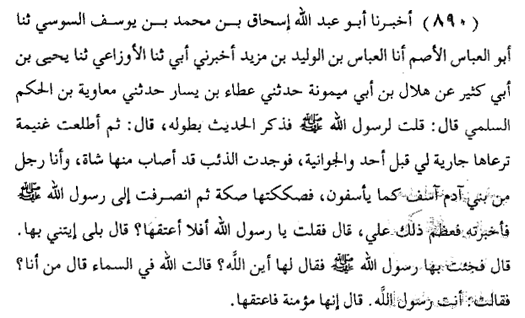 (٨٩٠) أخبرنا أبو عبد الله إسحاق بن محمد بن يوسف السوسي ثنا
أبو العباس الأصم أنا العباس بن الوليد بن مزيد أخبرني أبي ثنا الأوزاعي ثنا يحيى بن
أبي كثير عن هلال بن أبي ميمونة حدثني عطاء بن يسار حدثني معاوية بن الحكم
السلمي قال: قلت لرسول الله ﷺ فذكر الحديث بطوله، قال: ثم أطلعت غنيمة
ترعاها جارية لي قبل أحد والجوانية، فوجدت الذئب قد أصاب منها شاة، وأنا رجل
من بني آدم آسف كما يأسفون، فصككتها صكة ثم انصرفت إلى رسول الله ﷺ
فأخبرته فعظم ذلك علي، قال فقلت يا رسول الله أفلا أعتقها؟ قال بلى إيتني بها.
قال فجئت بها رسول الله ﷺ فقال لها أين اللَّه؟ قالت الله في السماء قال من أنا؟
فقالت: أنت رسول اللَّه. قال إنها مؤمنة فاعتقها.